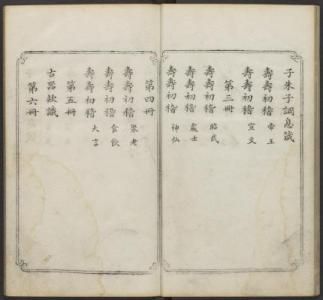 子朱子調息箴
壽壽初稽 帝王
壽壽初稽 宣文
第三冊
壽壽初稽 昭武
壽壽初稽 處士
壽壽初稽 神仙
第四冊
壽壽初稽 眾老
壽壽初稽 食飲
壽壽初稽 大言
第五冊
古器款識
第六冊